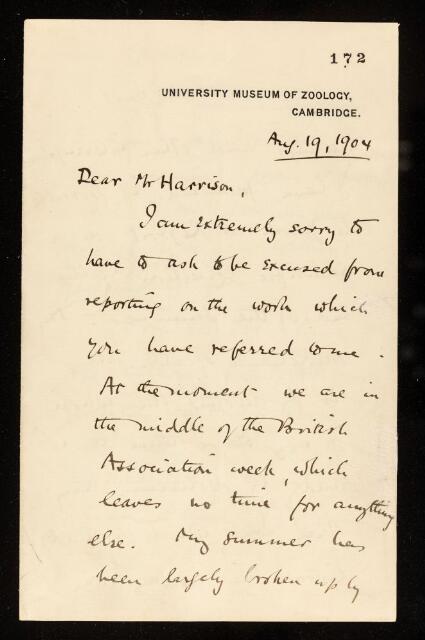 172
UNIVERSITY MUSEUM OF ZOOLOGY,
CAMBRIDGE.
Aug. 19, 1904
Dear Mr Harrison,
I am extremely sorry to
have to ask to be excused from
reporting on the work which
you have referred to me.
At the moment we are in
the middle of the British
Association week, which
leaves no time for anything
else. My summer has
been largely broken up by